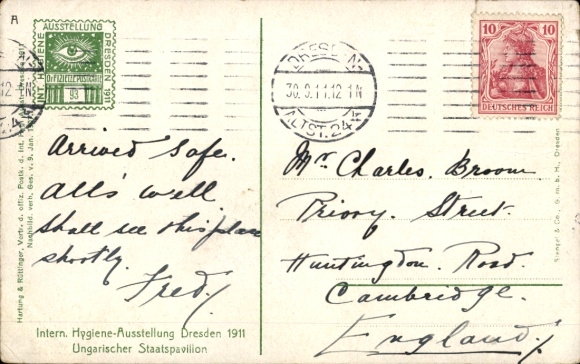 A
AUSSTELLUNG
INT. HYGIENE
DRESDEN 1911
OFFIZIELLE POSTKARTE
93
DRESDEN
30.9.11.12-1N
ALTST. 24
10 10
DEUTSCHES REICH
12-1N
Arrived Safe.
All's well
Shall see this place
shortly.
Fred.
Mr Charles. Broom
Priory. Street.
Huntingdon. Road.
Cambridge.
England.
Intern. Hygiene-Ausstellung Dresden 1911
Ungarischer Staatspavilion
Hartung & Rüttinger, Vertr. d. offiz. Postk. d. Int.
Nachbild. verb. Ges. v. 9. Jan.
Stengel & Co., G. m. b. H., Dresden